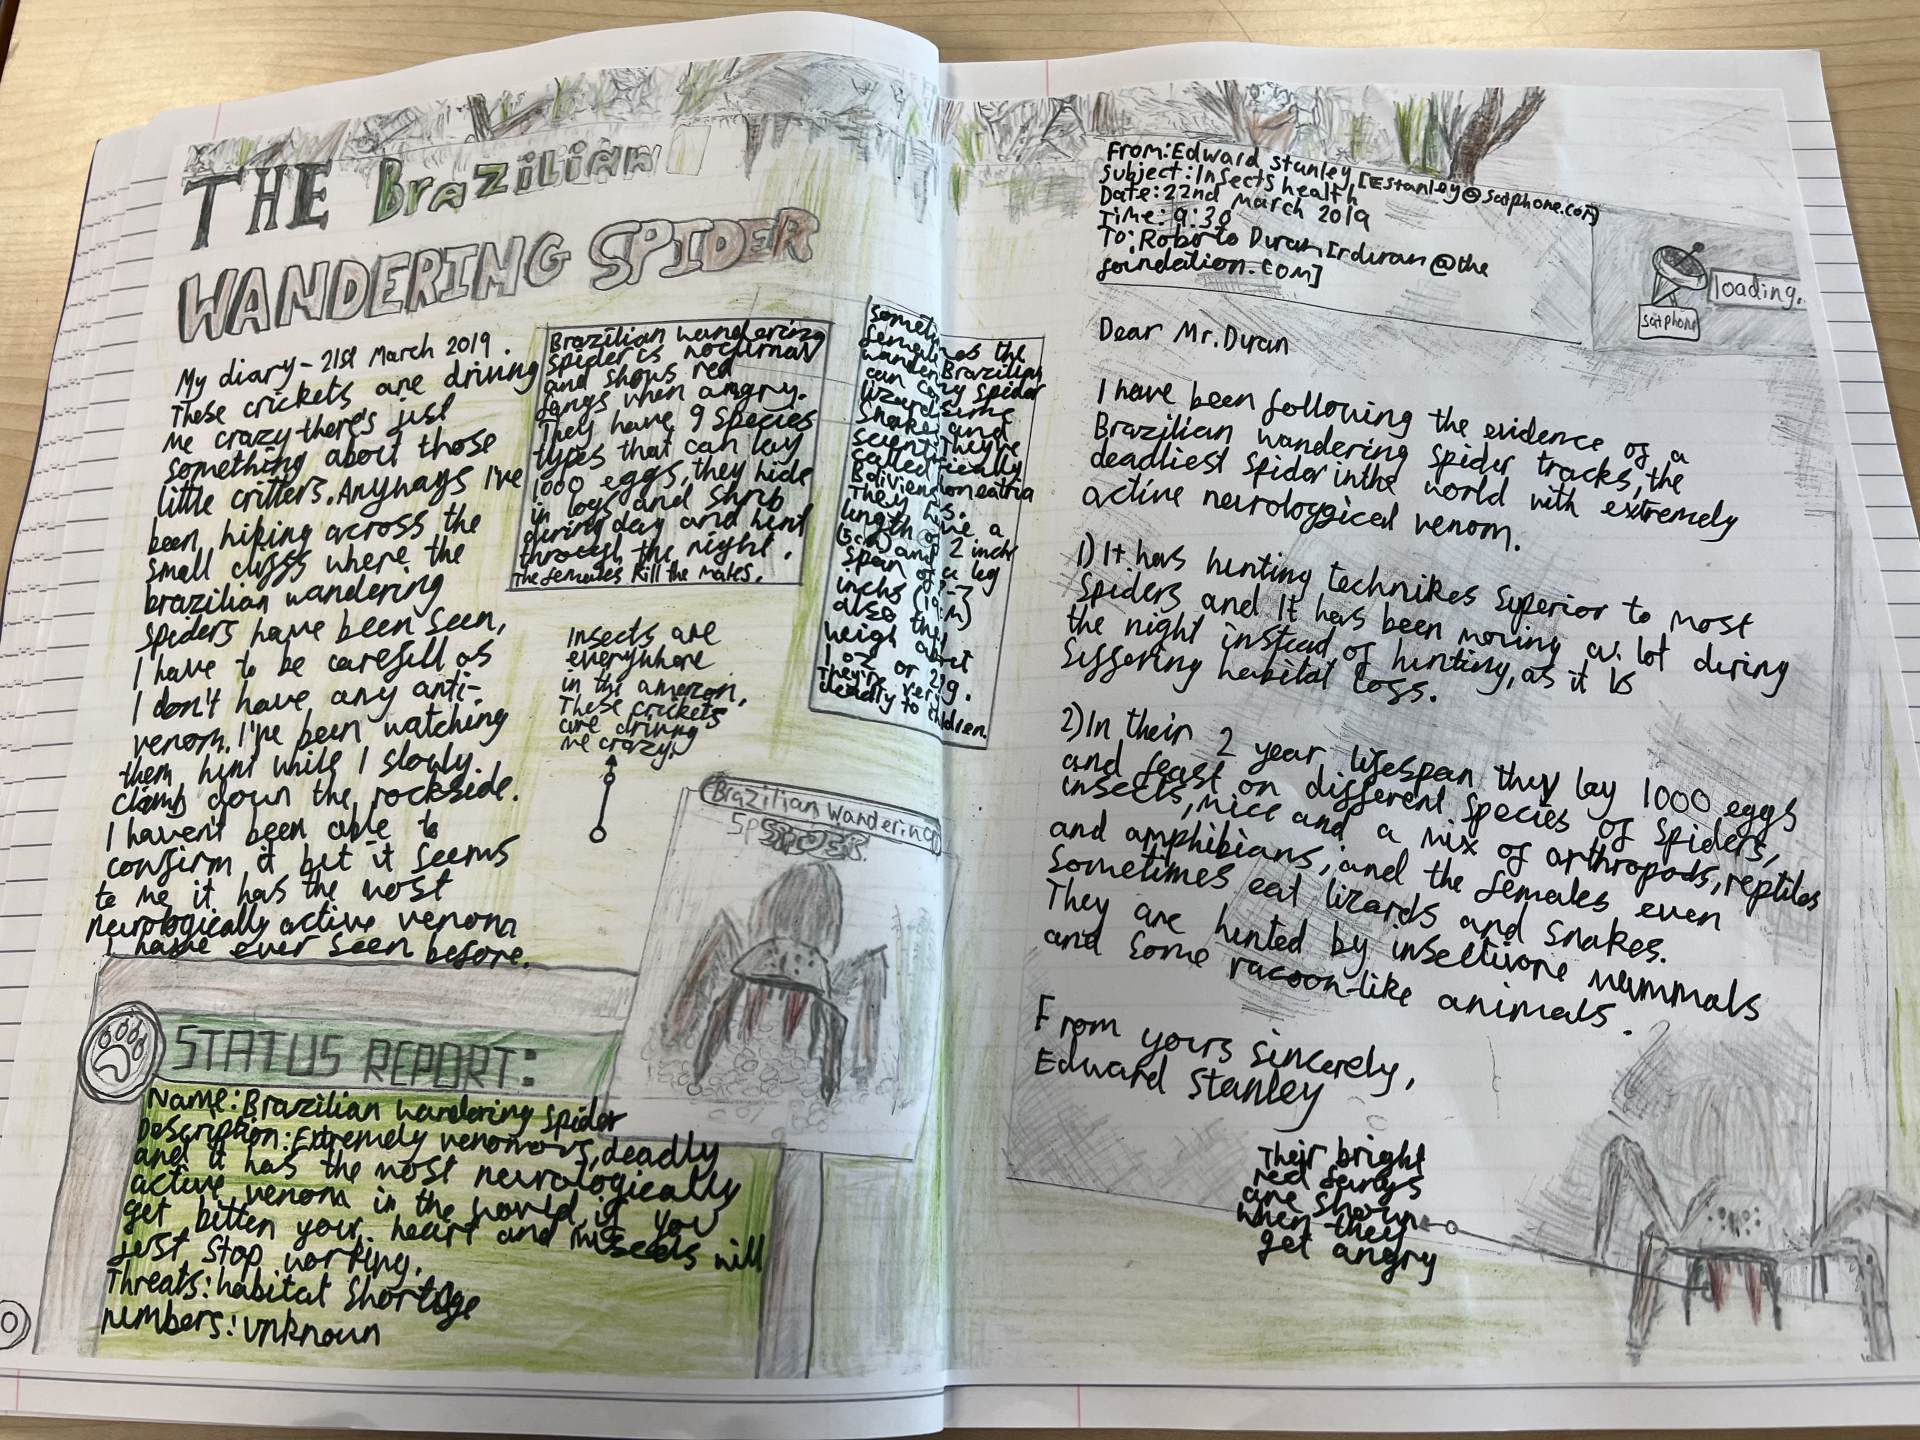 THE Brazilian
WANDERING SPIDER
My diary - 21st March 2019.
These crickets are driving
me crazy there's just
something about those
little critters. Anyways I've
been hiking across the
small cliffs where the
brazilian wandering
spiders have been seen,
I have to be carefull as
I don't have any anti-
venom. I've been watching
them hunt while I slowly
climb down the rockside.
I haven't been able to
confirm it but it seems
to me it has the most
neurologically active venom
I have ever seen before.
Brazilian wandering
spider is nocturnal
and shows red
fangs when angry.
They have 9 species
types that can lay
1000 eggs, they hide
in logs and shrub
during day and hunt
through the night.
The females kill the males.
Insects are
everywhere
in the amazon.
These crickets
are driving
me crazy.
the
female Brazilian
spider
can
lizards
snakes and They're
called
They have a
length of 2 inch
(5cm) and a leg
span of
inchs
also they
weigh about
1 oz or
They're very
deadly to children.
Brazilian Wandering
SPIDER
STATUS REPORT:
Name: Brazilian wandering spider
Description: Extremely venomous, deadly
and it has the most neurologically
active venom in the world, if you
get bitten your heart and will
just stop working.
Threats: habitat shortage
numbers: unknown
From: Edward stanley [Estanley@satphone.com]
Subject: Insects health
Date: 22nd March 2019
Time: 9:30
To: Roberto Duran [rduran@the
foundation.com]
satphone
loading.
Dear Mr. Duran
I have been following the evidence of a
Brazilian wandering spider tracks, the
deadliest spider in the world with extremely
active neurological venom.
1) It has hunting technikes superior to most
spiders and it has been moving a lot during
the night instead of hunting, as it is
suffering habitat loss.
2) In their 2 year lifespan they lay 1000 eggs
and feast on different species of spiders,
insects, mice and a mix of arthropods, reptiles
and amphibians, and the females even
sometimes eat lizards and snakes.
They are hunted by insectivore mammals
and some racoon-like animals.
From yours sincerely,
Edward Stanley
Their bright
red fangs
are shown
when they
get angry